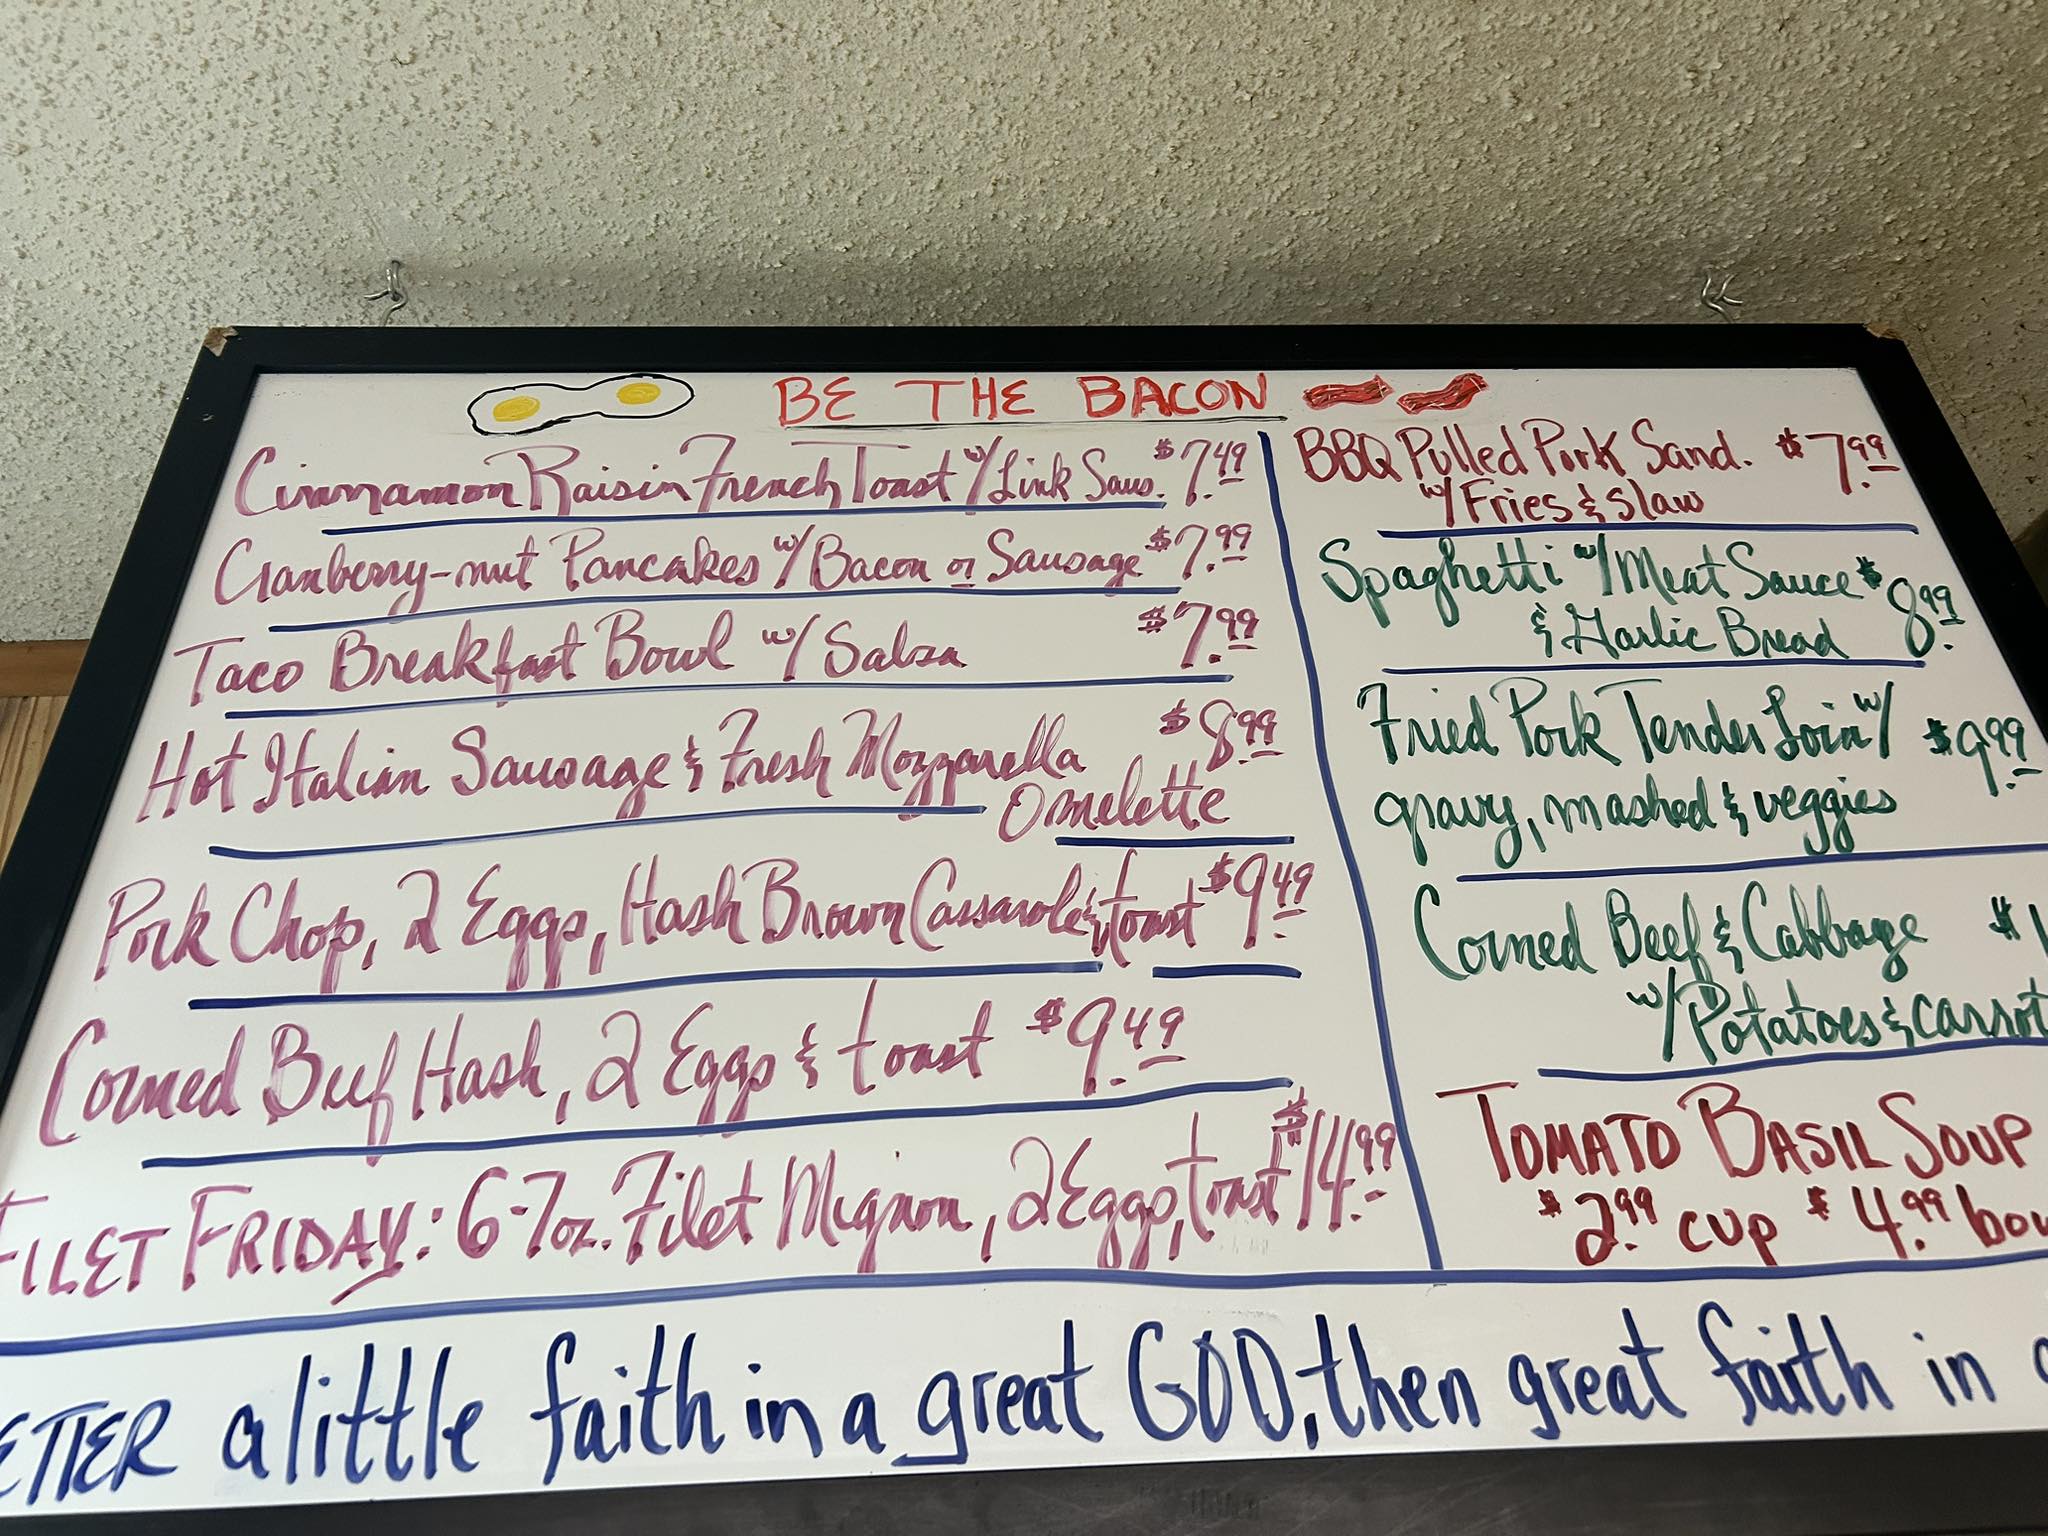 BE THE BACON
Cinnamon Raisin French Toast w/ Link Saus. $7.49
Cranberry-nut Pancakes w/ Bacon or Sausage $7.99
Taco Breakfast Bowl w/ Salsa $7.99
Hot Italian Sausage & Fresh Mozzarella $8.99
Omelette
Pork Chop, 2 Eggs, Hash Brown Cassarole & toast $9.49
Corned Beef Hash, 2 Eggs & toast $9.49
FILET FRIDAY: 6-7oz. Filet Mignon, 2 Eggs, toast $14.99
BBQ Pulled Pork Sand. $7.99
w/ Fries & slaw
Spaghetti w/ Meat Sauce $8.99
& Garlic Bread
Fried Pork Tender Loin w/ $9.99
gravy, mashed & veggies
Corned Beef & Cabbage $1
w/ Potatoes & carrot
TOMATO BASIL SOUP
$2.99 cup $4.99 bow
ETTER a little faith in a great GOD, then great faith in a